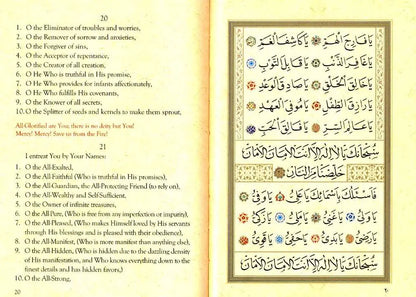 20
1. O the Eliminator of troubles and worries,
2. O the Remover of sorrow and anxieties,
3. O the Forgiver of sins,
4. O the Acceptor of repentance,
5. O the Creator of all creation,
6. O He Who is truthful in His promise,
7. O He Who provides for infants affectionately,
8. O He Who fulfills His covenants,
9. O the Knower of all secrets,
10. O the Splitter of seeds and kernels to make them sprout,
All-Glorified are You; there is no deity but You!
Mercy! Mercy! Save us from the Fire!
21
I entreat You by Your Names:
1. O the All-Exalted,
2. O the All-Faithful (Who is truthful in His promises),
3. O the All-Guardian, the All-Protecting Friend (to rely on),
4. O the All-Wealthy and Self-Sufficient,
5. O the Owner of infinite treasures,
6. O the All-Pure, (Who is free from any imperfection or impurity),
7. O the All-Pleased, (Who makes Himself loved by His servants
through His blessings and is pleased with who is obedient),
8. O the All-Manifest, (Who is more manifest than anything else),
9. O the All-Hidden (Who is hidden due to the dazzling density
of His manifestation, and Who knows everything down to the
finest details and has hidden favors,)
10. O the All-Strong,
20
يَا فَارِجَ الْهَمِّ يَا كَاشِفَ الْغَمِّ
يَا غَافِرَ الذَّنْبِ يَا قَابِلَ التَّوْبِ
يَا خَالِقَ الْخَلْقِ يَا صَادِقَ الْوَعْدِ
يَا رَازِقَ الطِّفْلِ يَا مُوفِيَ الْعَهْدِ
يَا عَالِمَ السِّرِّ يَا فَالِقَ الْحَبِّ
سُبْحَانَكَ يَا لَا إِلٰهَ إِلَّا أَنْتَ الْأَمَانَ الْأَمَانَ
خَلِّصْنَا مِنَ النَّارِ
فَأَسْئَلُكَ بِأَسْمَائِكَ يَا عَلِيُّ يَا وَفِيُّ
يَا وَلِيُّ يَا غَنِيُّ يَا مَلِيُّ يَا زَكِيُّ
يَا رَضِيُّ يَا بَدِيُّ يَا حَفِيُّ يَا قَوِيُّ
سُبْحَانَكَ يَا لَا إِلٰهَ إِلَّا أَنْتَ الْأَمَانَ الْأَمَانَ